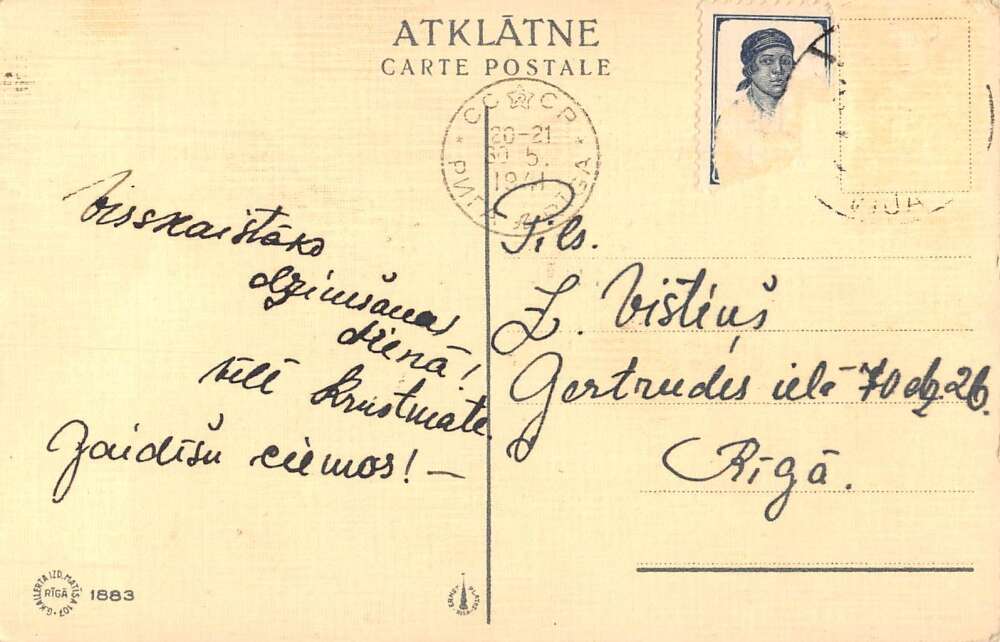 ATKLĀTNE
CARTE POSTALE
СС СР
20-21
30 5.
1941
РИГА RIGA
Visskaistāko
dzimšanas
dienā!
vēlē Krustmāte.
Gaidīšu ciemos! —
Pils.
Z. Vištiņš
Gertrudes ielā 70 dz. 26.
Rīgā.
G. KAILERTA IZD. MATĪSA 107
RĪGĀ
1883